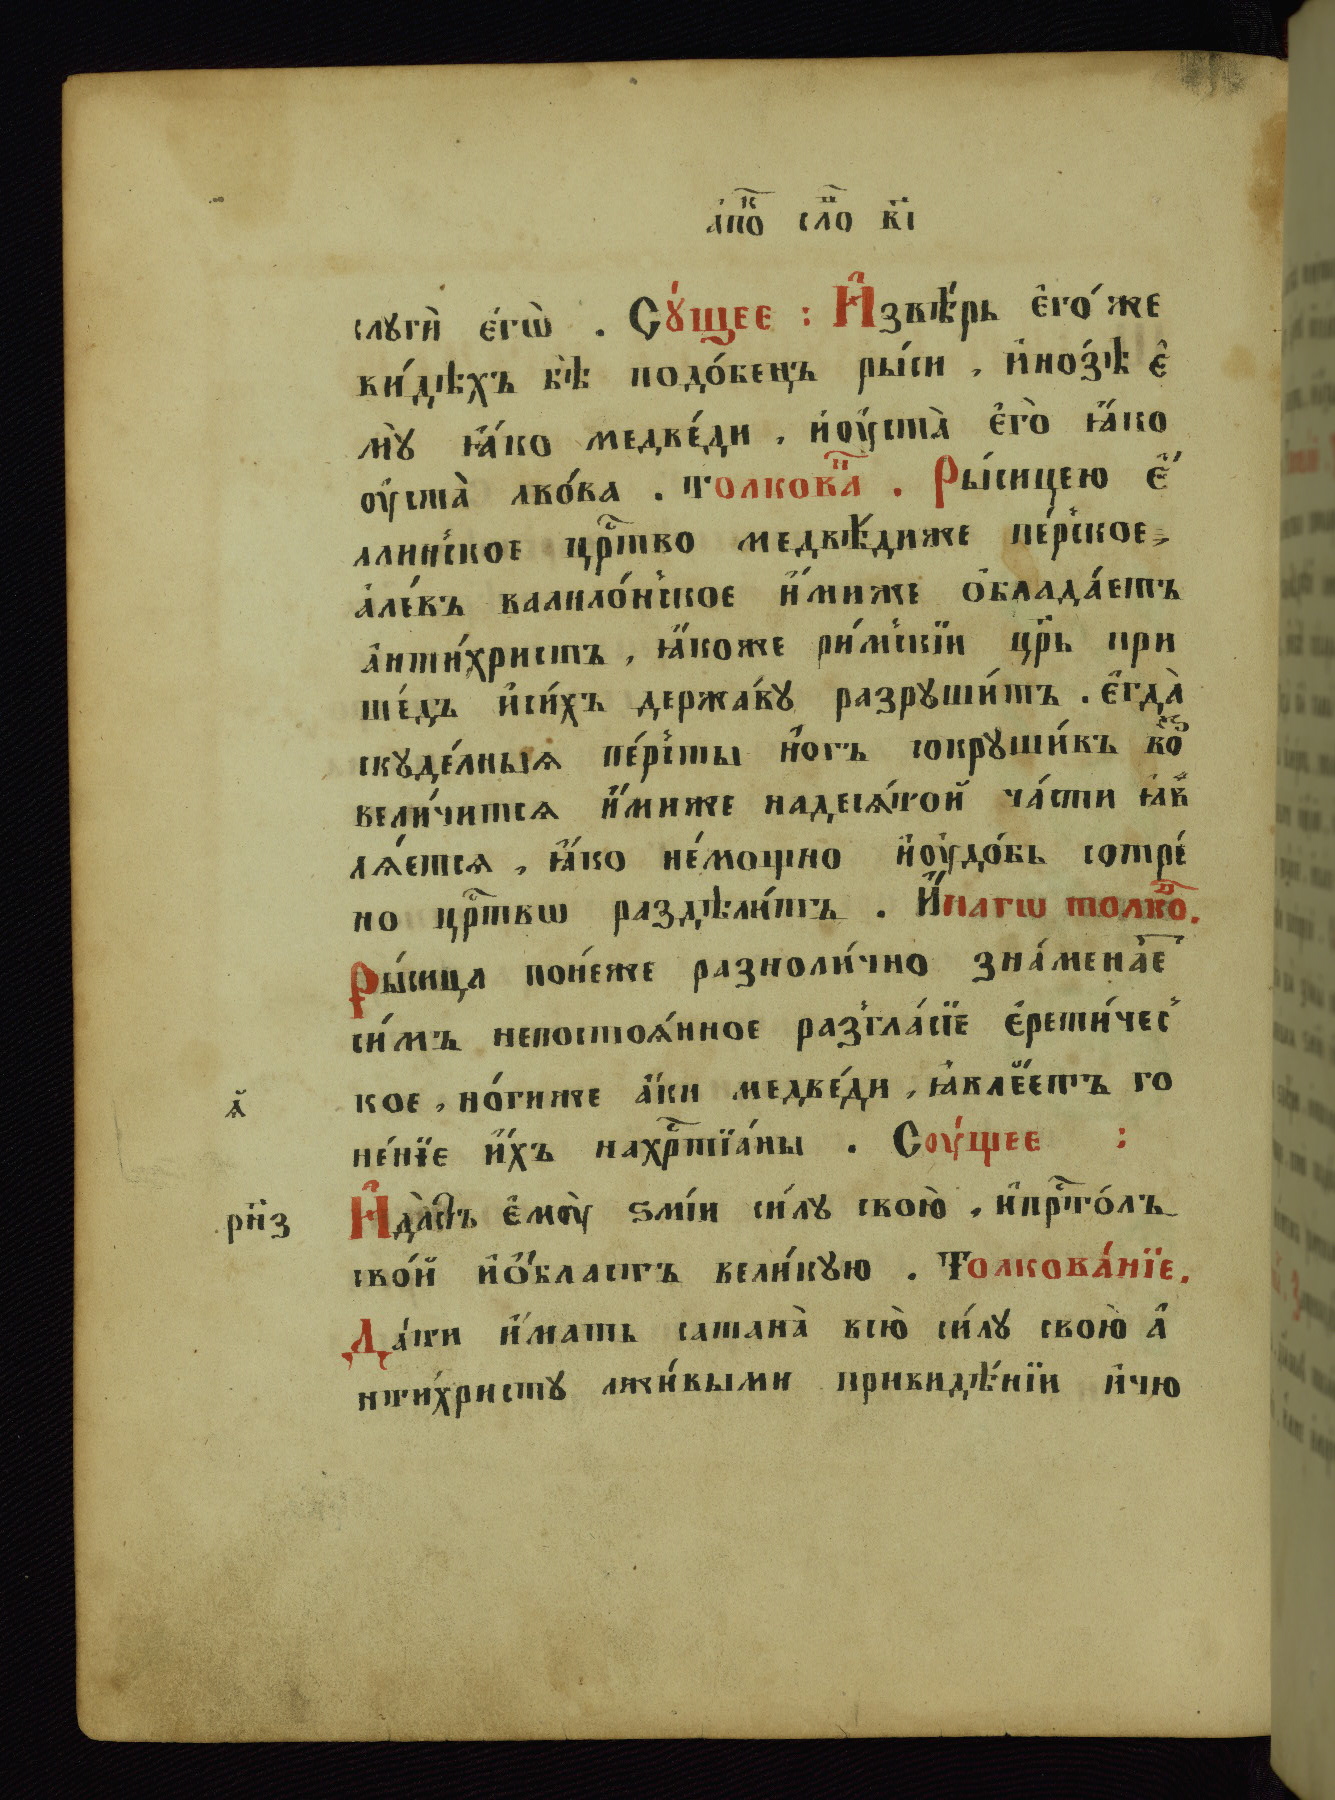 а҆по́к сло́в в҃і
слуги̑ є҆гѡ̀ . Су́щее : И҆звѣ́рь є҆го́ же
ви́дѣхъ бѣ̀ подо́бенъ ры́си , и҆но́зѣ є҆
мꙋ̀ ꙗ҆́ко медве́ди , и҆оу҆ста̀ є҆го̀ ꙗ҆́ко
оу҆ста̀ льво́ва . толкова́н . Ры́сицею є҆́
ллинское црⷭ҇тво медвѣ́диже пе́рское
а҆ле́въ вавило́нское и҆́миже ѻ҆блада́етъ
а҆нти́христъ , ꙗ҆́коже ри́мскїи цр҃ь при
ше́дъ и҆си́хъ держа́ву разруши́тъ . є҆гда̀
скуде́лныѧ пе́рсты но́гъ сокруши́въ во́з
вели́читсѧ и҆́миже надесѧ́той ча́сти ꙗ҆в
лѧ́етсѧ , ꙗ҆́ко не́мощно и҆оу҆до́бь сотре́
но црⷭ҇твѡ раздѣли́тъ . И҆́нагѡ толко́в .
Ры́сица поне́же разноли́чно зна́менае
си́мъ непостоѧ́нное разгла́сїе є҆рети́чес
а҃ кое , но́гиже а҆́ки медве́ди , ꙗ҆вле́етъ го
не́нїе и҆́хъ нахрⷭ҇тїа́ны . Соу́щее :
рн҃з И҆да́стъ є҆моу̀ ѕмі́и си́лу свою̀ , и҆прⷭ҇то́лъ
сво́й и҆ѻ҆́бласть вели́кую . Толкова́нїе .
Да́ти и҆́мать сатана̀ всю̀ си́лу свою̀ а҆
нти́христу лжи́выми привидѣ́нїи и҆чю